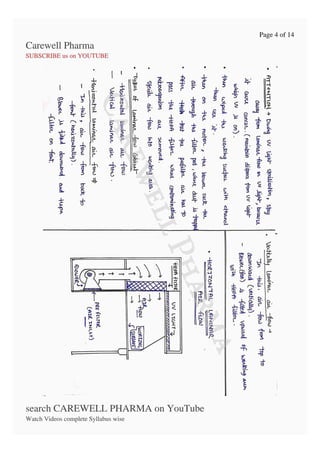 Page 4 of 14
Carewell Pharma
SUBSCRIBE us on YOUTUBE
• ATTENTION : During UV light sterilization, stay
away from laminar flow as UV light, because
it cause cancer. (minimum distance from UV light
when UV is on)
• then wiped the working surface with ethanol
than use it.
• then on the motor, the blower suck the
air through the filter pad, where dust is trapped
• After that the prefilter air has to
pass the HEPA filter, where contaminating
microorganism are removed.
• Sterile air flow into working area.
• Types of laminar flow cabinet
— Horizontal laminar air flow
— Vertical laminar air flow.
• Horizontal laminar air flow :
— In this, air flow from back to
front (horizontally).
— Blower is fitted downward and HEPA
filter on front.
• Vertically laminar air flow →
- In this, air flow from top to
downward (vertically).
- Blower is fitted upward of working area
with HEPA filter.
• HORIZONTAL LAMINAR
AIR FLOW
UV LIGHT
HEPA FILTER
AIR FLOW
WORKING SURFACE
PRE FILTER
(AIR INLET)
BLOWER
CAREWELL PHARMA
search CAREWELL PHARMA on YouTube
Watch Videos complete Syllabus wise